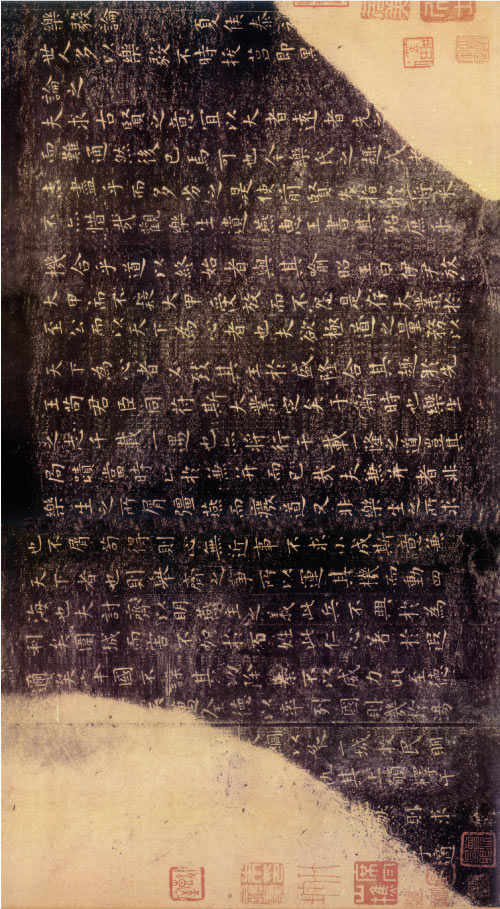 樂毅論 夏侯泰
世人多以樂毅不時拔莒即墨
論之
夫求古賢之意宜以大者遠者先之
而難通然後已焉可也今樂氏之趣或者
未盡乎而多劣之是使前賢失指於將來
不亦惜哉觀樂生遺燕惠王書其殆庶乎
機合乎道以終始者與其喻昭王曰伊尹放
大甲而不疑大甲受放而不怨是存大業於
至公而以天下為心者也夫欲極道之量務以
天下為心者必致其主於盛隆合其趣於先
王苟君臣同符斯大業定矣于斯時也樂生
之志千載一遇也亦將行千載一隆之道豈其
局蹟當時止於兼濟而已哉夫兼濟者非
樂生之所屑彊燕而廢道又非樂生之所求
也不屑苟得則心無近事不求小成斯意兼
天下者也則舉齊之事所以運其機而動四
海也夫討齊以明燕主之義此兵不興於為
利矣圍城而害不加於百姓此仁心著於遐
邇矣舉國不謀其功除暴不以威力此至德
邁全德以率列國則幾於湯
以縱二城牧民明
仇其上願釋干
則求
道